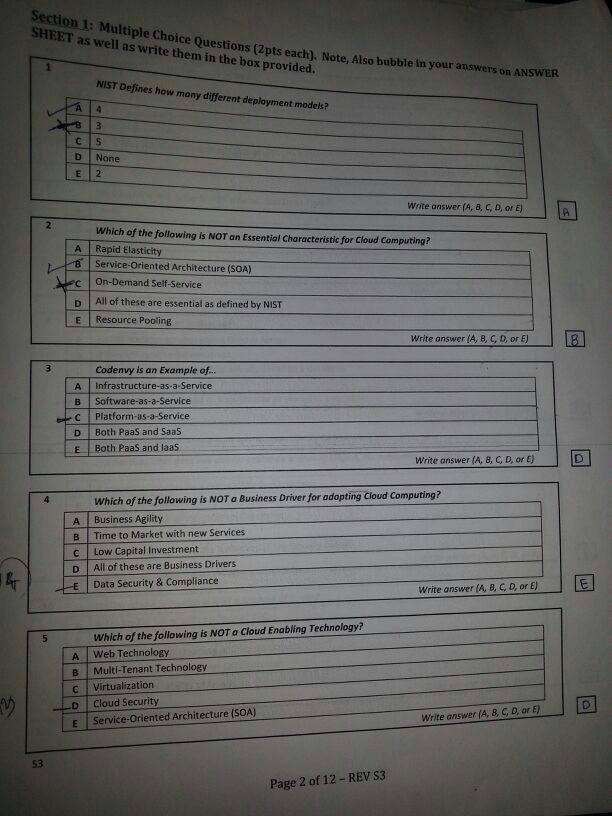 Section 1: Multiple Choice Questions (2pts each). Note, Also bubble in your answers on ANSWER
SHEET as well as write them in the box provided.
1
NIST Defines how many different deployment models?
A 4
B 3
C 5
D None
E 2
Write answer (A, B, C, D, or E)
A
2
Which of the following is NOT an Essential Characteristic for Cloud Computing?
A Rapid Elasticity
B Service-Oriented Architecture (SOA)
C On-Demand Self-Service
D All of these are essential as defined by NIST
E Resource Pooling
Write answer (A, B, C, D, or E)
B
3
Codenvy is an Example of...
A Infrastructure-as-a-Service
B Software-as-a-Service
C Platform-as-a-Service
D Both PaaS and SaaS
E Both PaaS and IaaS
Write answer (A, B, C, D, or E)
D
4
Which of the following is NOT a Business Driver for adopting Cloud Computing?
A Business Agility
B Time to Market with new Services
C Low Capital Investment
D All of these are Business Drivers
E Data Security & Compliance
Write answer (A, B, C, D, or E)
E
5
Which of the following is NOT a Cloud Enabling Technology?
A Web Technology
B Multi-Tenant Technology
C Virtualization
D Cloud Security
E Service-Oriented Architecture (SOA)
Write answer (A, B, C, D, or E)
D
S3
Page 2 of 12 – REV S3